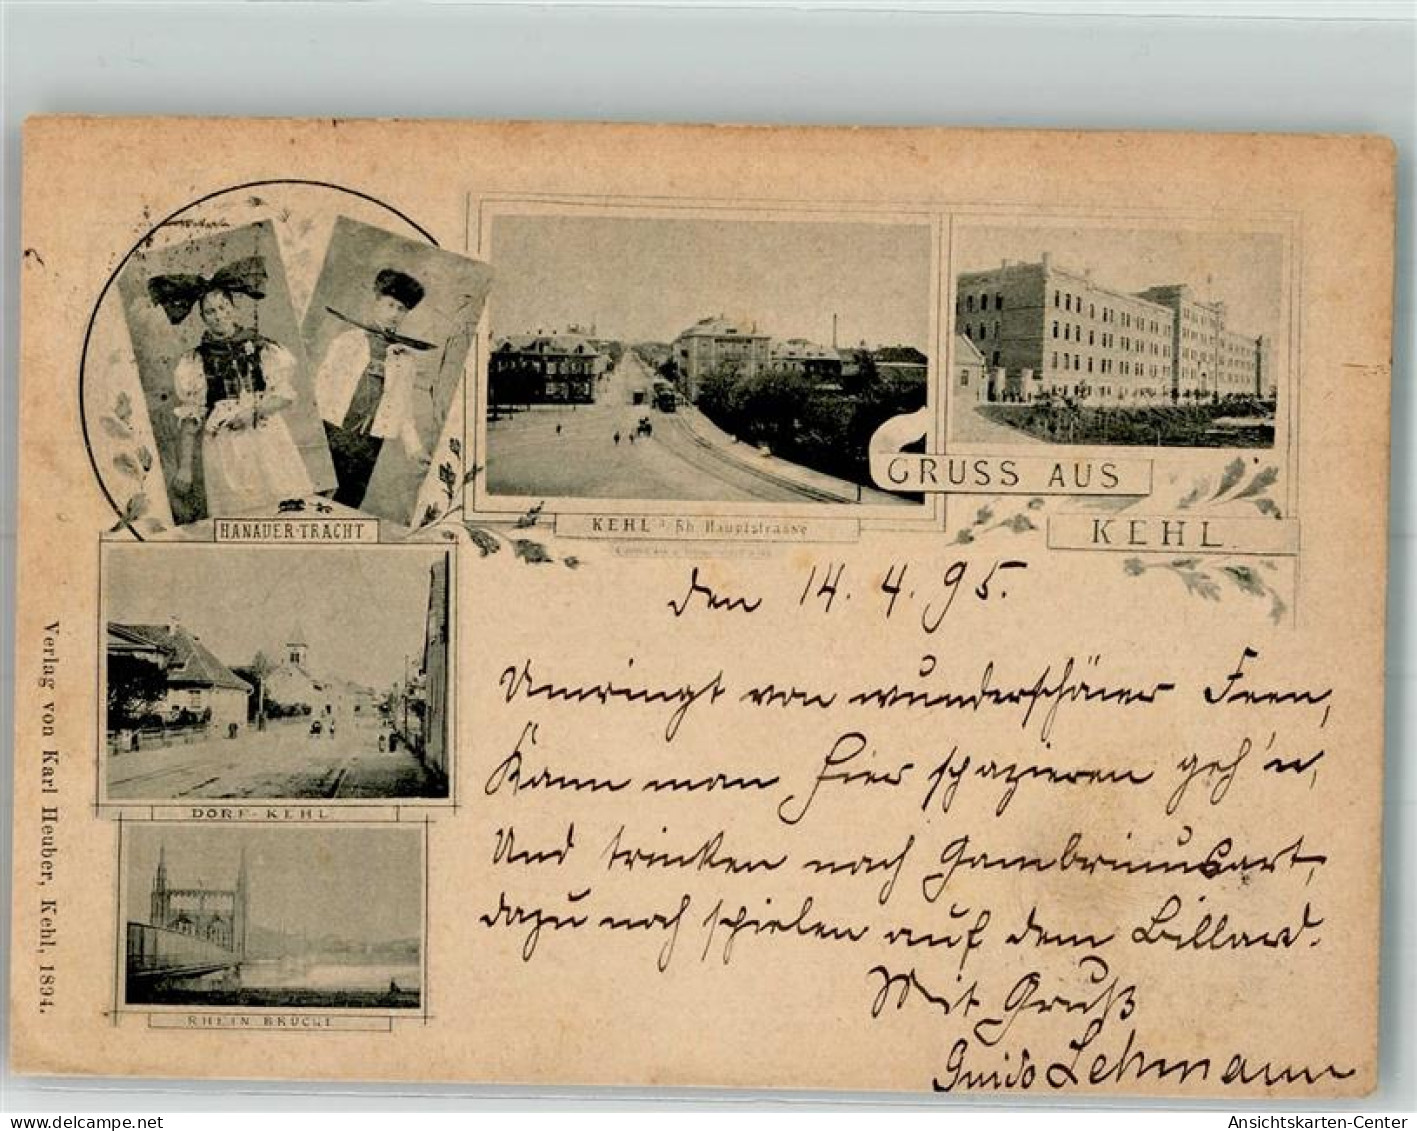 HANAUER-TRACHT
KEHL a. Rh. Hauptstrasse
GRUSS AUS
KEHL.
DORF-KEHL
RHEIN BRÜCKE
Verlag von Karl Heuber, Kehl, 1894.
den 14. 4. 95.
Umringt von wunderschöner Feen,
Kann man hier spazieren geh'n,
Und trinken nach Gambrinusart,
dazu noch spielen auf dem Billard.
Mit Gruß
Guido Lehmann
delcampe.net
the collector's marketplace
Ansichtskarten-Center